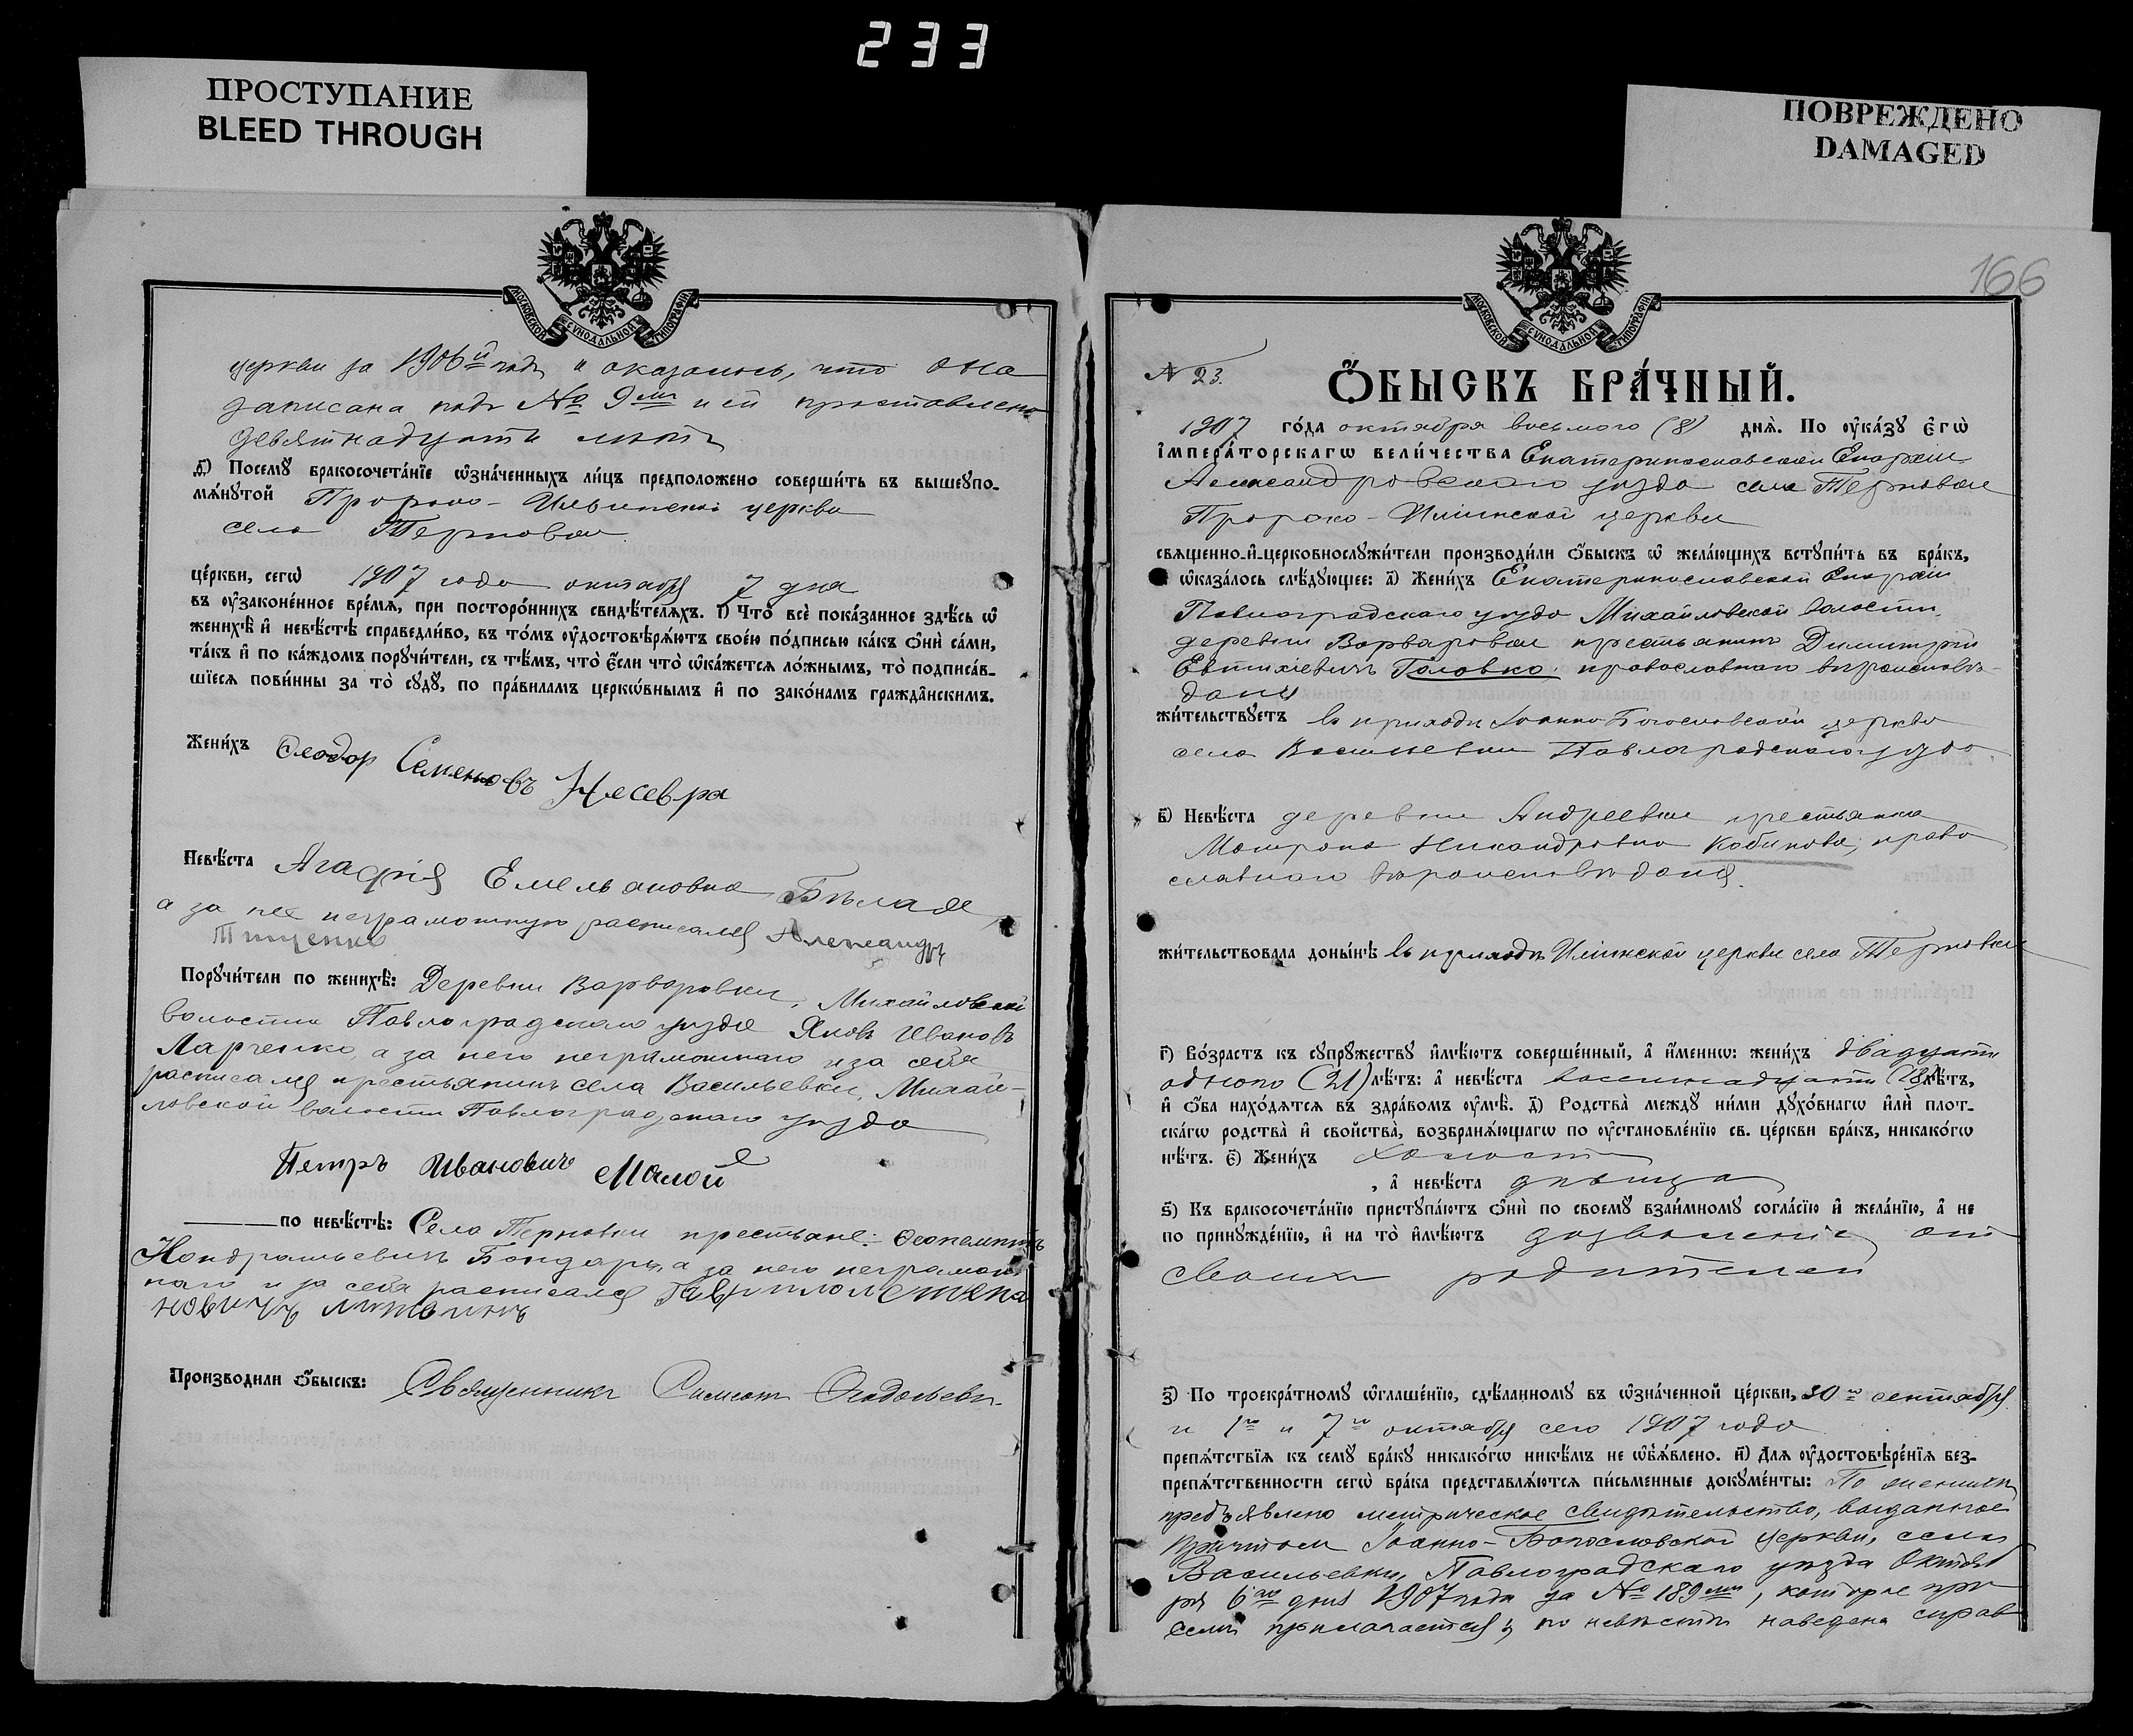 233
ПРОСТУПАНИЕ
BLEED THROUGH
ПОВРЕЖДЕНО
DAMAGED
МОСКОВСКОЙ СѴНОДАЛЬНОЙ ТИПОГРАФІИ
церкви за 1906й годъ и оказалось, что она
записана подъ № 9мъ и ей проставлено
девятнадцать лѣтъ
д҃) Посемꙋ бракосочета́нїе ѡ҆зна́ченныхъ ли́цъ предположено соверши́ть въ вышеꙋпо-
мѧ́нꙋтой Пророко-Ильинской церкви
села Терновки
це́ркви, сегѡ̀ 1907 года октября 7 дня
въ ᲂу҆зако́ненное вре́мѧ, при посторо́ннихъ свидѣ́телѧхъ. і҃) Что̀ всѐ пока́занное здѣ́сь ѡ҆
женихѣ̀ и҆ невѣ́стѣ справедли́во, въ то́мъ ᲂу҆достовѣрѧ́ютъ свое́ю по́дписью ка́къ ѻ҆нѝ са́ми,
та́къ и҆ по ка́ждомъ порꙋчи́тели, съ тѣ́мъ, что̀ є҆́сли что̀ ѡ҆ка́жетсѧ ло́жнымъ, то̀ подписа́в-
шїесѧ пови́нны за то̀ сꙋдꙋ̀, по пра́виламъ церко́внымъ и҆ по зако́намъ гражда́нскимъ.
Жени́хъ Ѳеодор Семеновъ Несевра
Невѣ́ста Агафія Емельановна Бѣлая
а за нее неграмотную расписался Александръ
Тищенко
Порꙋчи́тели по женихѣ̀: Деревни Варваровки, Михайловской
волости Павлоградскаго уѣзда Яковъ Ивановъ
Ларченко, а за него неграмотнаго и за себя
расписался крестьянинъ села Васильевки, Михай-
ловской волости Павлоградскаго уѣзда
Петръ Ивановичъ Малой
по невѣ́стѣ: Села Терновки крестьане: Ѳеопемптъ
Кондратьевичъ Бондарь, а за него неграмот-
наго и за себя расписался Гаврилом Степа
новичъ Литвинъ
Производили ѻ҆́быскъ: Священникъ Симеон
166
МОСКОВСКОЙ СѴНОДАЛЬНОЙ ТИПОГРАФІИ
№ 23.
Ѻ҆́БЫСКЪ БРА́ЧНЫЙ.
1907 го́да октября восьмого (8) днѧ̀. По ᲂу҆ка́зꙋ є҆гѡ̀
і҆мпера́торскагѡ вели́чества Екатеринославской Епархіи
Александровскаго уѣзда села Терновки
Пророко-Илiинской церкви
свѧщенно-и҆-церковнослꙋжи́тели производи́ли ѻ҆́быскъ ѡ҆ жела́ющихъ встꙋпи́ть въ бра́къ,
ѡ҆каза́лось слѣ́дꙋющее: а҃) Жени́хъ Екатеринославской Епархіи
Павлоградскаго уѣзда Михайловской волости
деревни Варваровки крестьанинъ Димитрій
Евтихіевичъ Головко, православнаго вѣроисповѣ-
данія
жи́тельствꙋетъ въ приходѣ Іоанно-Богословской церкви
села Васильевки Павлоградскаго уѣзда
в҃) Невѣ́ста деревни Андреевки крестьанка
Матрона Никандровна Кобикова, право
славнаго вѣроисповѣданія.
жи́тельствовала доны́нѣ въ приходѣ Илiинской церкви села Терновки
г҃) Во́зрастъ къ сꙋпрꙋжествꙋ и҆мѣ́ютъ соверше́нный, а҆ и҆́меннѡ: жени́хъ двадцати
одного (21) лѣ́тъ: а҆ невѣ́ста восемнадцати (18) лѣ́тъ,
и҆ ѻ҆́ба нахо́дѧтсѧ въ здра́вомъ ᲂу҆мѣ̀. д҃) Родства̀ междꙋ ни́ми дꙋхо́внагѡ и҆лѝ плот-
ска́гѡ родства̀ и҆ сво́йства, возбранѧ́ющагѡ по ᲂу҆становле́нїю св. це́ркви бра́къ, никако́гѡ
нѣ́тъ. є҃) Жени́хъ холостъ
, а҆ невѣ́ста дѣвица
ѕ҃) Къ бракосочета́нїю пристꙋпа́ютъ ѻ҆нѝ по своемꙋ̀ взаи́мномꙋ согла́сїю и҆ жела́нїю, а҆ не
по принꙋжде́нїю, и҆ на то̀ и҆мѣ́ютъ дозволеніе отъ
своихъ родителей
з҃) По троекра́тномꙋ ѡ҆глаше́нїю, сдѣ́ланномꙋ въ ѡ҆зна́ченной це́ркви, 30го сентября
и 1го и 7го октября сего 1907 года
препѧ́тствїѧ къ семꙋ̀ бра́кꙋ никако́гѡ никѣ́мъ не ѡ҆бъѧ́влено. и҃) Для ᲂу҆достовѣре́нїѧ без-
препѧ́тственности сегѡ̀ бра́ка представлѧ́ютсѧ пи́сьменные докꙋме́нты: По женихѣ
предъявлено метрическое свидѣтельство, выданное
причтомъ Іоанно-Богословской церкви, села
Васильевки, Павлоградскаго уѣзда Октяб
ря 6го дня 1907 года за № 189мъ, которое при
семъ прилагается; по невѣстѣ наведена справ